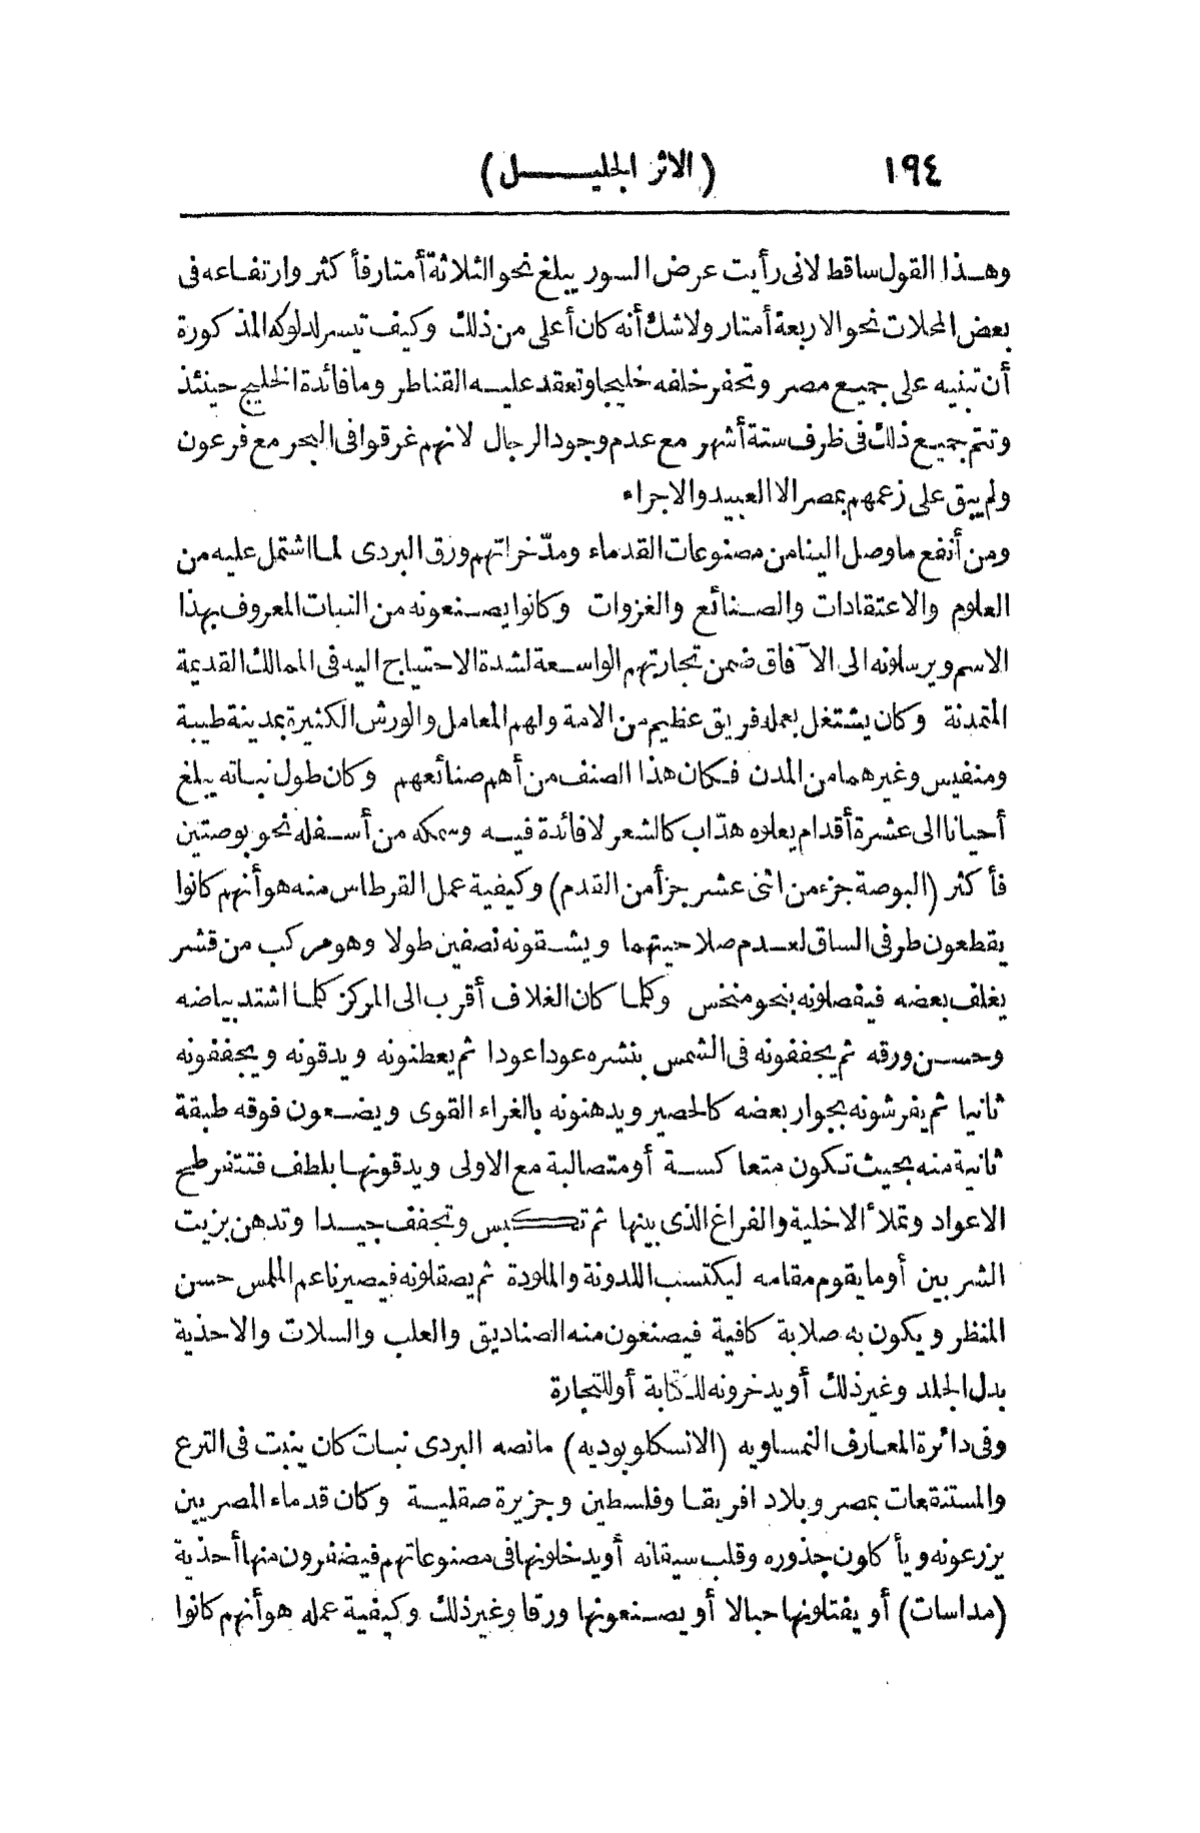 ١٩٤ (الاثر الجليل)
وهذا القول ساقط لانى رأيت عرض السور يبلغ نحو الثلاثة أمتار فأكثر وارتفاعه فى
بعض المحلات نحو الاربعة أمتار ولاشك أنه كان أعلى من ذلك وكيف تيسر لدلوكه المذكورة
أن تبنيه على جميع مصر وتحفر خلفه خليجا وتعقد عليه القناطر وما فائدة الخليج حينئذ
وتتم جميع ذلك فى ظرف ستة أشهر مع عدم وجود الرجال لانهم غرقوا فى البحر مع فرعون
ولم يبق على زعمهم بمصر الا العبيد والاجراء
ومن أنفع ما وصل الينا من مصنوعات القدماء ومدّخراتهم ورق البردى لما اشتمل عليه من
العلوم والاعتقادات والصنائع والغزوات وكانوا يصنعونه من النبات المعروف بهذا
الاسم ويرسلونه الى الآفاق ضمن تجارتهم الواسعة لشدة الاحتياج اليه فى الممالك القديمة
المتمدنة وكان يشتغل بعمله فريق عظيم من الامة ولهم المعامل والورش الكثيرة بمدينة طيبة
ومنفيس وغيرهما من المدن فكان هذا الصنف من أهم صنائعهم وكان طول نباته يبلغ
أحيانا الى عشرة أقدام يعلوه هدّاب كالشعر لا فائدة فيه وسمكه من أسفله نحو بوصتين
فأكثر (البوصة جزء من اثنى عشر جزأ من القدم) وكيفية عمل القرطاس منه هو أنهم كانوا
يقطعون طرفى الساق لعدم صلاحيتهما ويشقونه نصفين طولا وهو مركب من قشر
يغلف بعضه فيفصلونه بنحو منخس وكلما كان الغلاف أقرب الى المركز كلما اشتد بياضه
وحسن ورقه ثم يجففونه فى الشمس بنشره عودا عودا ثم يعطنونه ويدقونه ويجففونه
ثانيا ثم يفرشونه بجوار بعضه كالحصير ويدهنونه بالغراء القوى ويضعون فوقه طبقة
ثانية منه بحيث تكون متعاكسة أو متصالبة مع الاولى ويدقونها بلطف فتتفرطح
الاعواد وتملأ الاخلية والفراغ الذى بينها ثم تكبس وتجفف جيدا وتدهن بزيت
الشربين أو ما يقوم مقامه ليكتسب اللدونة والملودة ثم يصقلونه فيصير ناعم الملمس حسن
المنظر ويكون به صلابة كافية فيصنعون منه الصناديق والعلب والسلات والاحذية
بدل الجلد وغير ذلك أو يدخرونه للكتابة أو للتجارة
وفى دائرة المعارف النمساويه (الانسكلوبوديه) مانصه البردى نبات كان ينبت فى الترع
والمستنقعات بمصر وبلاد افريقا وفلسطين وجزيرة صقلية وكان قدماء المصريين
يزرعونه ويأكلون جذوره وقلب سيقانه أو يدخلونها فى مصنوعاتهم فيضفرون منها أحذية
(مداسات) أو يفتلونها حبالا أو يصنعونها ورقا وغير ذلك وكيفية عمله هو أنهم كانوا